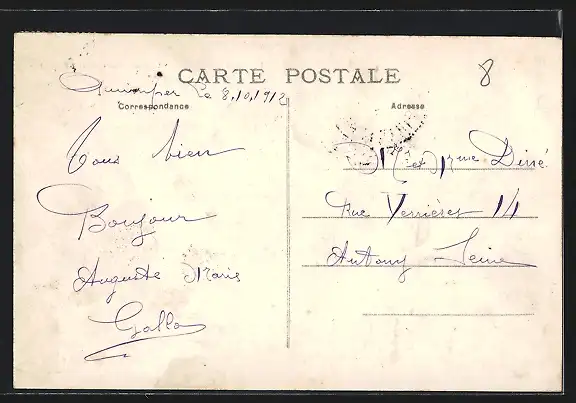 CARTE POSTALE
8
Quimper le 8.10.1912
Correspondance
Adresse
Bien
Bonjour
Auguste Marie
Gallo
M et Mme
Rue Verrières 14
Antony Seine